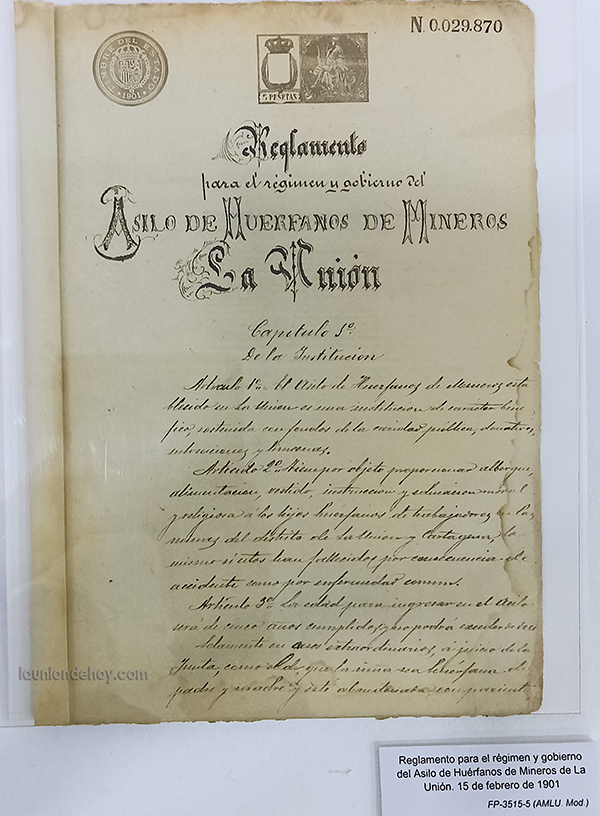 N. 0.029.870
TIMBRE DEL ESTADO
1901
5 PESETAS
Reglamento
para el régimen y gobierno del
ASILO DE HUERFANOS DE MINEROS
La Unión
Capitulo 1º
De la Institucion
Articulo 1º El Asilo de Huerfanos de Mineros esta
blecido en La Union es una institucion de caracter bene
fico, sostenida con fondos de la caridad publica, donativos,
subvenciones y limosnas.
Articulo 2º Tiene por objeto proporcionar albergue,
alimentacion, vestido, instruccion y educacion moral
y religiosa á los hijos huerfanos de trabajadores en las
minas del distrito de La Union y Cartagena, lo
mismo si estos han fallecido por consecuencia de
accidente como por enfermedad comun.
Articulo 3º La edad para ingresar en el Asilo
será de cinco años cumplidos, y no podrá exceder de
Solamente en casos extraordinarios, á juicio de la
Junta, como el de que la niña sea huérfana de
padre y madre y esté abandonada
launiondehoy.com
Reglamento para el régimen y gobierno
del Asilo de Huérfanos de Mineros de La
Unión. 15 de febrero de 1901
FP-3515-5 (AMLU. Mod.)